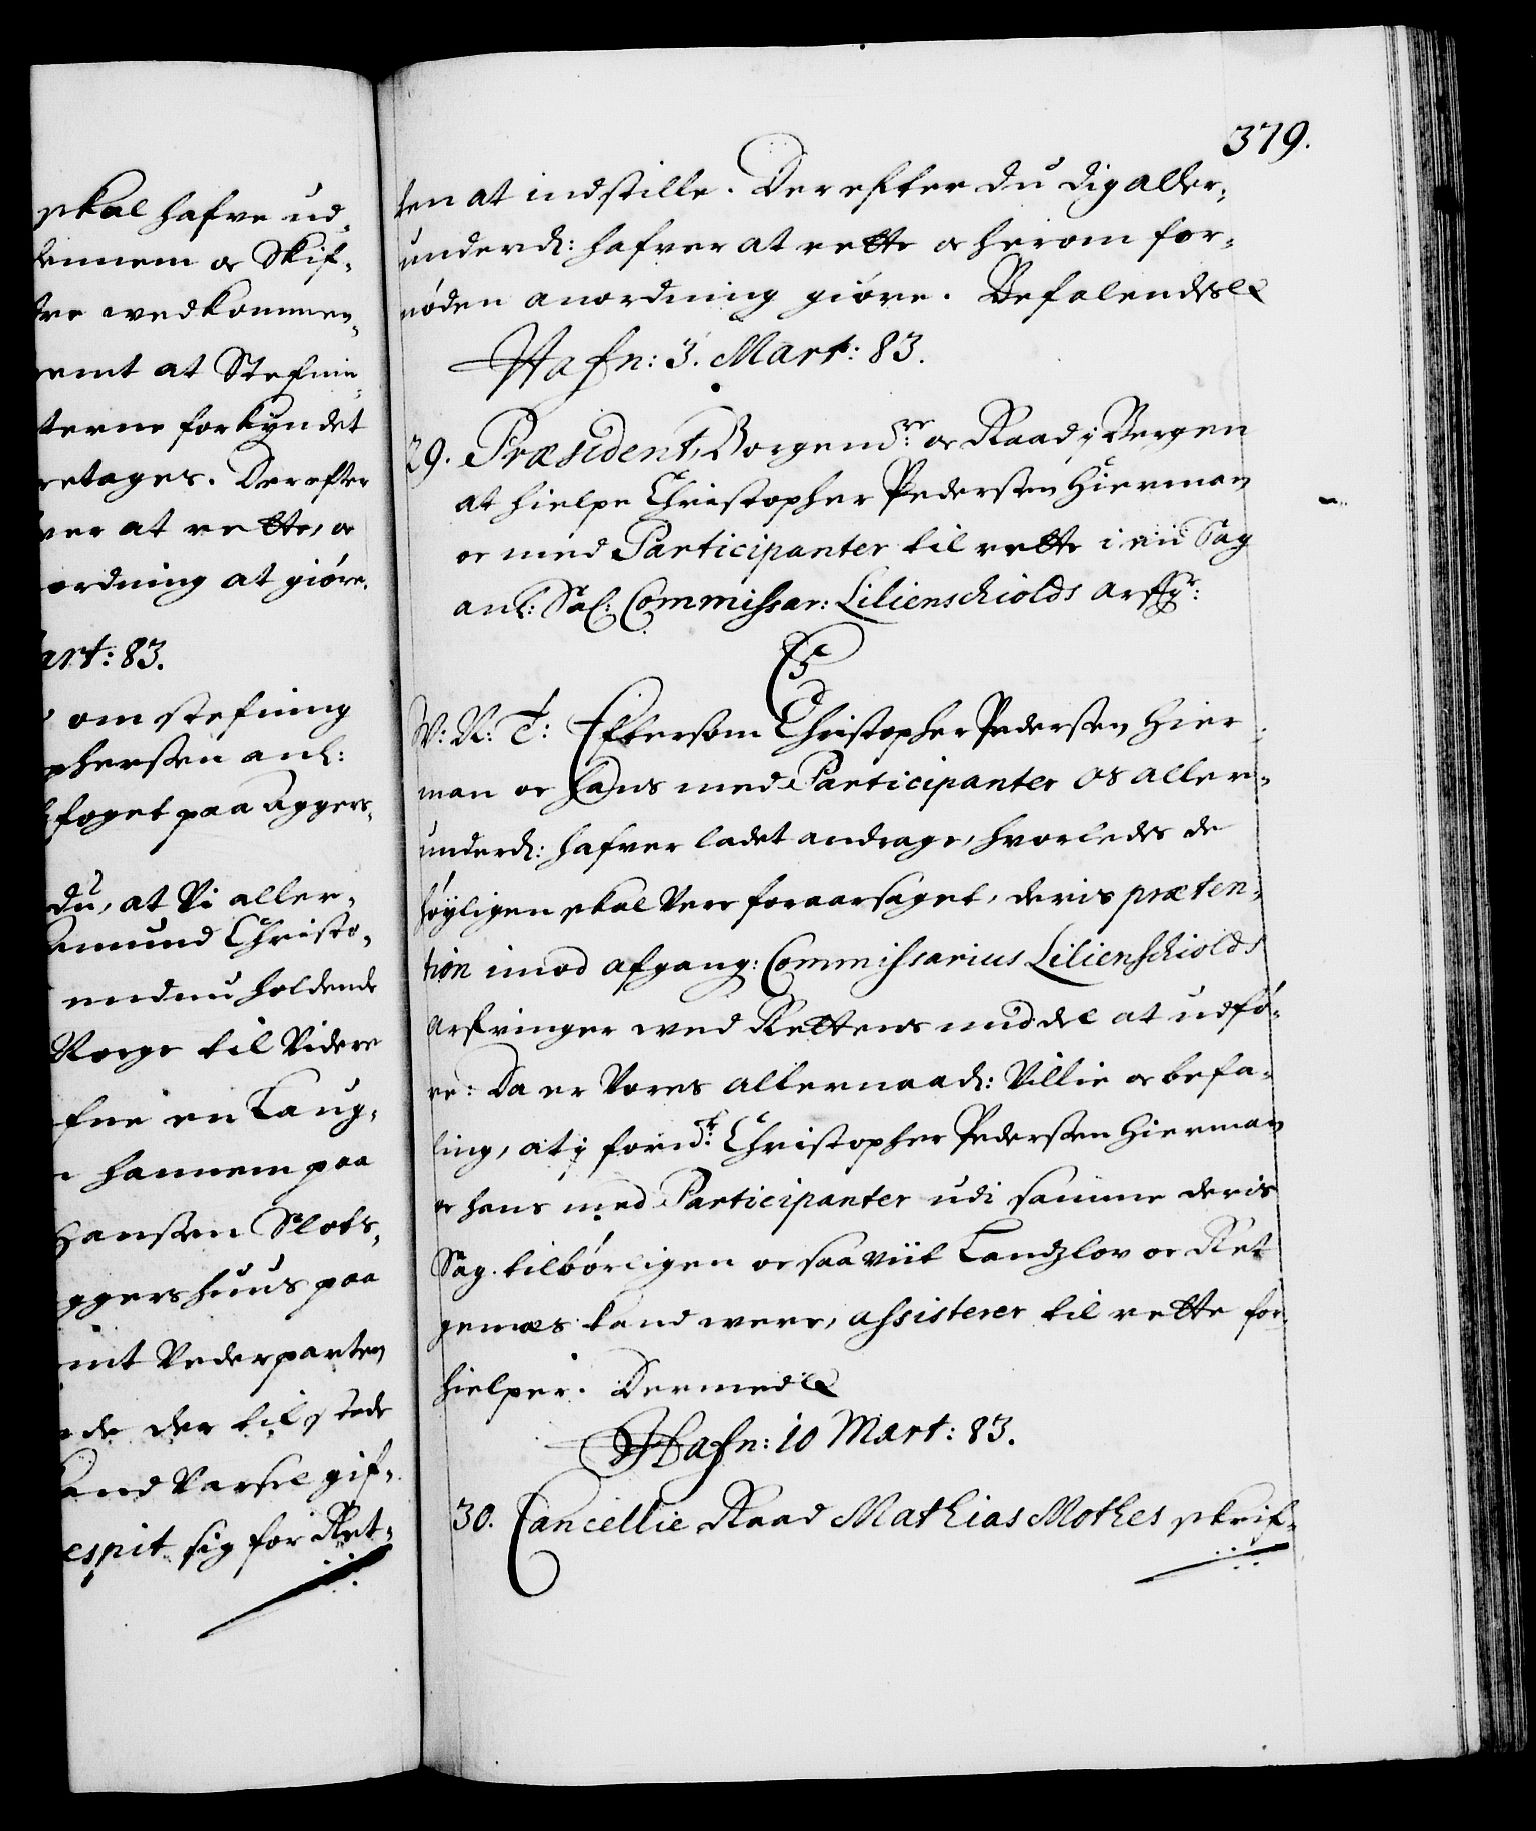 skal hafve ud-
hennem oc Skif-
tre wedkommen-
emt at Stefnin-
terne forkyndet
retages. Derefter
ver at rette, oc
ordning at giøre.
art: 83.
om stefning
phersen anl:
foget paa Agger-
du, at Vi aller-
amund Christo-
endnu holdende
Norge til Videre
fne en Laug-
hannem paa
Hansen Slots-
ggershuus paa
mt Vederparten
de der til stede
and Varsel gif-
espit sig for Ret-
379.
ten at indstille. Derefter du dig aller-
underd: hafver at rette oc herom for-
nöden anordning giöre. Befalendes &c
Hafn: 3. Mart: 83.
29. Præsident, Borgemre: oc Raad i Bergen
at hielpe Christopher Pedersen Hierman
oc med Participanter til rette i en Sag
anl: Sal: Commissar: Lilienschiolds arffgr:
C5
V: N: T: Eftersom Christopher Pedersen Hier-
man oc hans med Participanter os aller-
underd: hafver ladet andrage, hvorledes de
höyligen skal vere foraarsaget, deris præten-
tion imod afgang: Commissarius Lilienschiolds
arfvinger wed Rettens middel at udfö-
re: Da er Vores allernaad: Villie oc befa-
ling, at i fornte: Christopher Pedersen Hierman
oc hans med Participanter udi samme deris
Sag tilbörligen oc saa viit Landzlov oc Ret
gemæs kand were, assisterer til rette for-
hielper. Dermed &c
Hafn: 10 Mart: 83.
30. Cancellie Raad Mathias Mothes skrif-